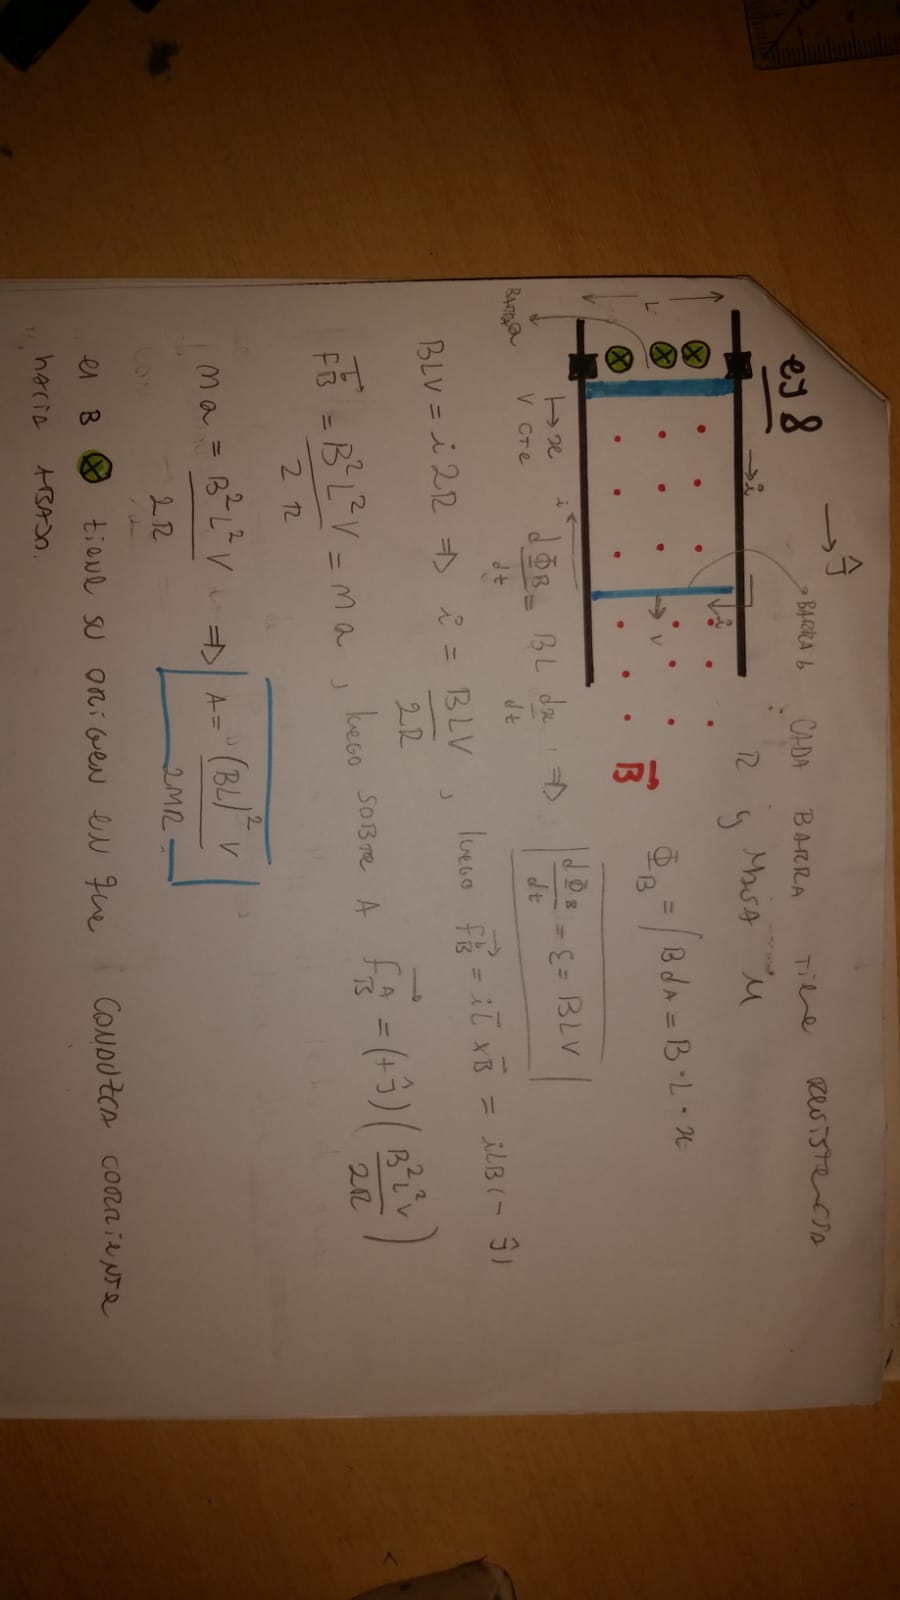 → ĵ
ej 8
BARRA b CADA BARRA tiene resistencia
R y MASA M
→i
i
L
→ v
B⃗
Φ_B = ∫ B dA = B · L · x
BARRA a
↦ x
V cte
i ←
dΦ_B/dt = BL dx/dt ⇒ dΦ_B/dt = ε = BLV
BLV = i 2R ⇒ i = BLV/2R , luego F_B^b = i l⃗ x B⃗ = iLB(- ĵ)
F_B^b = B²L²V/2R = m a , luego SOBre A F_B^A = (+ĵ) (B²L²V/2R)
m a = B²L²V/2R ⇒ A = (BL)² V/2MR
el B ⊗ tiene su origen en que CONDUZCA corriente
hacia ABAJO.